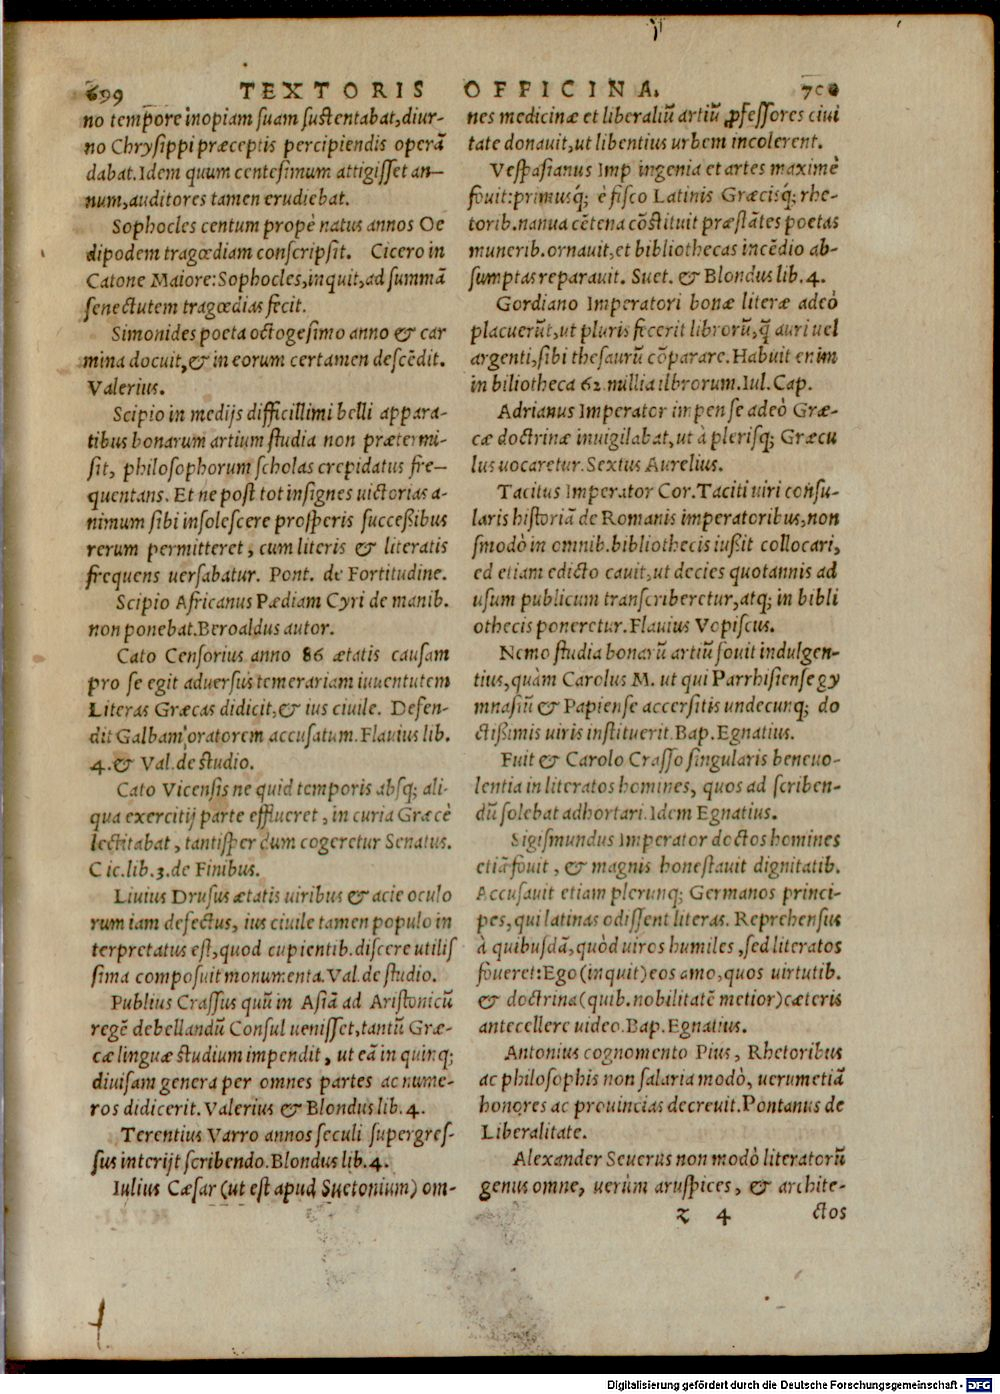 699 TEXTORIS OFFICINA. 700
no tempore inopiam suam sustentabat, diur-
no Chrysippi præceptis percipiendis operā
dabat. Idem quum centesimum attigisset an-
num, auditores tamen erudiebat.
Sophocles centum propè natus annos Oe
dipodem tragœdiam conscripsit. Cicero in
Catone Maiore: Sophocles, inquit, ad summā
senectutem tragœdias fecit.
Simonides poeta octogesimo anno & car
mina docuit, & in eorum certamen descēdit.
Valerius.
Scipio in medijs difficillimi belli appara-
tibus bonarum artium studia non prætermi-
sit, philosophorum scholas crepidatus fre-
quentans. Et ne post tot insignes uictorias a-
nimum sibi insolescere prosperis successibus
rerum permitteret, cum literis & literatis
frequens uersabatur. Pont. de Fortitudine.
Scipio Africanus Pædiam Cyri de manib.
non ponebat. Beroaldus autor.
Cato Censorius anno 86 ætatis causam
pro se egit aduersus temerariam iuuentutem
Literas Græcas didicit, & ius ciuile. Defen-
dit Galbam oratorem accusatum. Flauius lib.
4. & Val. de studio.
Cato Vicensis ne quid temporis absq; ali-
qua exercitij parte efflueret, in curia Græcè
lectitabat, tantisper dum cogeretur Senatus.
Cic. lib. 3. de Finibus.
Liuius Drusus ætatis uiribus & acie oculo
rum iam defectus, ius ciuile tamen populo in
terpretatus est, quod cupientib. discere utilis
sima composuit monumenta. Val. de studio.
Publius Crassus quū in Asiā ad Aristonicū
regē debellandū Consul uenisset, tantū Græ-
cæ linguæ studium impendit, ut eā in quinq;
diuisam genera per omnes partes ac nume-
ros didicerit. Valerius & Blondus lib. 4.
Terentius Varro annos seculi supergres-
sus interijt scribendo. Blondus lib. 4.
Iulius Cæsar (ut est apud Suetonium) om-
nes medicinæ et liberaliū artiū ꝓfessores ciui
tate donauit, ut libentius urbem incolerent.
Vespasianus Imp ingenia et artes maximè
fouit: primusq́; è fisco Latinis Græcisq́; rhe-
torib. nanua cētena cōstituit præstātes poetas
munerib. ornauit, et bibliothecas incēdio ab-
sumptas reparauit. Suet. & Blondus lib. 4.
Gordiano Imperatori bonæ literæ adeò
placuerūt, ut pluris fecerit librorū, q̄ auri uel
argenti, sibi thesaurū cōparare. Habuit enim
in biliotheca 62 millia ilbrorum. Iul. Cap.
Adrianus Imperator impense adeò Græ-
cæ doctrinæ inuigilabat, ut à plerisq; Græcu
lus uocaretur. Sextus Aurelius.
Tacitus Imperator Cor. Taciti uiri consu-
laris historiā de Romanis imperatoribus, non
smodò in omnib. bibliothecis iußit collocari,
ed etiam edicto cauit, ut decies quotannis ad
usum publicum transcriberetur, atq; in bibli
othecis poneretur. Flauius Vopiscus.
Nemo studia bonarū artiū fouit indulgen-
tius, quàm Carolus M. ut qui Parrhisiense gy
mnasiū & Papiense accersitis undecunq; do
ctißimis uiris instituerit. Bap. Egnatius.
Fuit & Carolo Crasso singularis beneuo-
lentia in literatos homines, quos ad scriben-
dū solebat adhortari. Idem Egnatius.
Sigismundus Imperator doctos homines
etiā fouit, & magnis honestauit dignitatib.
Accusauit etiam plerunq; Germanos princi-
pes, qui latinas odissent literas. Reprehensus
à quibusdā, quòd uiros humiles, sed literatos
foueret: Ego (inquit) eos amo, quos uirtutib.
& doctrina (quib. nobilitatē metior) cæteris
antecellere uideo. Bap. Egnatius.
Antonius cognomento Pius, Rhetoribus
ac philosophis non salaria modò, uerumetiā
honores ac prouincias decreuit. Pontanus de
Liberalitate.
Alexander Seuerus non modò literatorū
genus omne, uerùm aruspices, & archite-
z 4 ctos
Digitalisierung gefördert durch die Deutsche Forschungsgemeinschaft - DFG